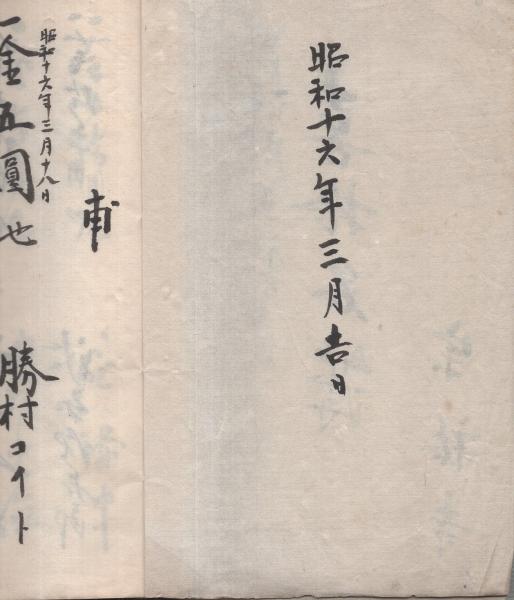 昭和十六年三月吉日
甫
昭和十六年三月十八日
一金五圓也
勝村コイト